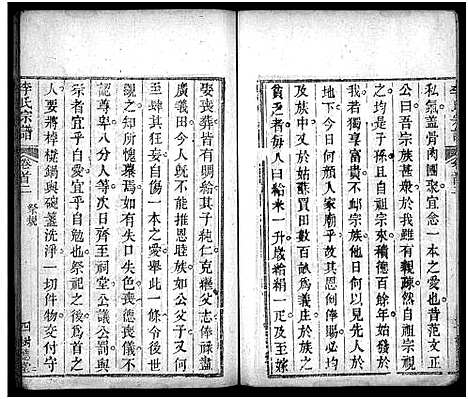 私氣蓋骨肉團聚宜念一本之愛也昔范文正
公曰吾宗族甚衆於我雖有親疎然自祖宗視
之則均是子孫且自祖宗來積德百餘年始發於
我若獨享富貴而不恤宗族異日何以見祖宗於
地下今日何顏入家廟乎故恩例俸賜必均
及族人又於姑蘇買田數百畝爲義庄於族之
貧乏者每人日給米一升歲給衣一
娶喪葬皆有賙給其子純仁克繼父志俸祿盡
廣義田今人縱不能恩睦族如公父子又何
至肆其狂妄自傷一本之愛舉此一條令
觀之知所愧
認尊卑八分人等次日齊至祠堂公議公罰與
祭者宜乎自愛宜乎自勉也祭祀之後爲首之
人要將樽椀鍋與碗盞洗淨一切件物交付守
李氏宗譜
卷首二
祭規
四